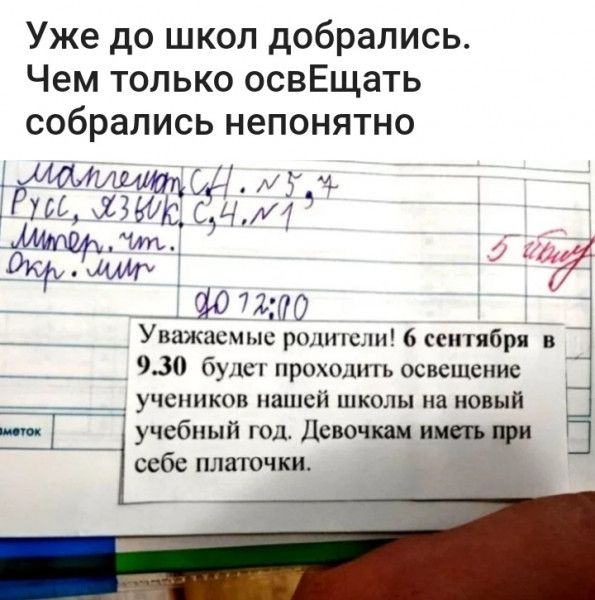 Уже до школ добрались.
Чем только освЕщать
собрались непонятно
С,Ч. №5,7
Русс, язык С,Ч.№1
Литер. чт.
Окр. мир
до 12:00
Уважаемые родители! 6 сентября в
9.30 будет проходить освещение
учеников нашей школы на новый
учебный год. Девочкам иметь при
себе платочки.